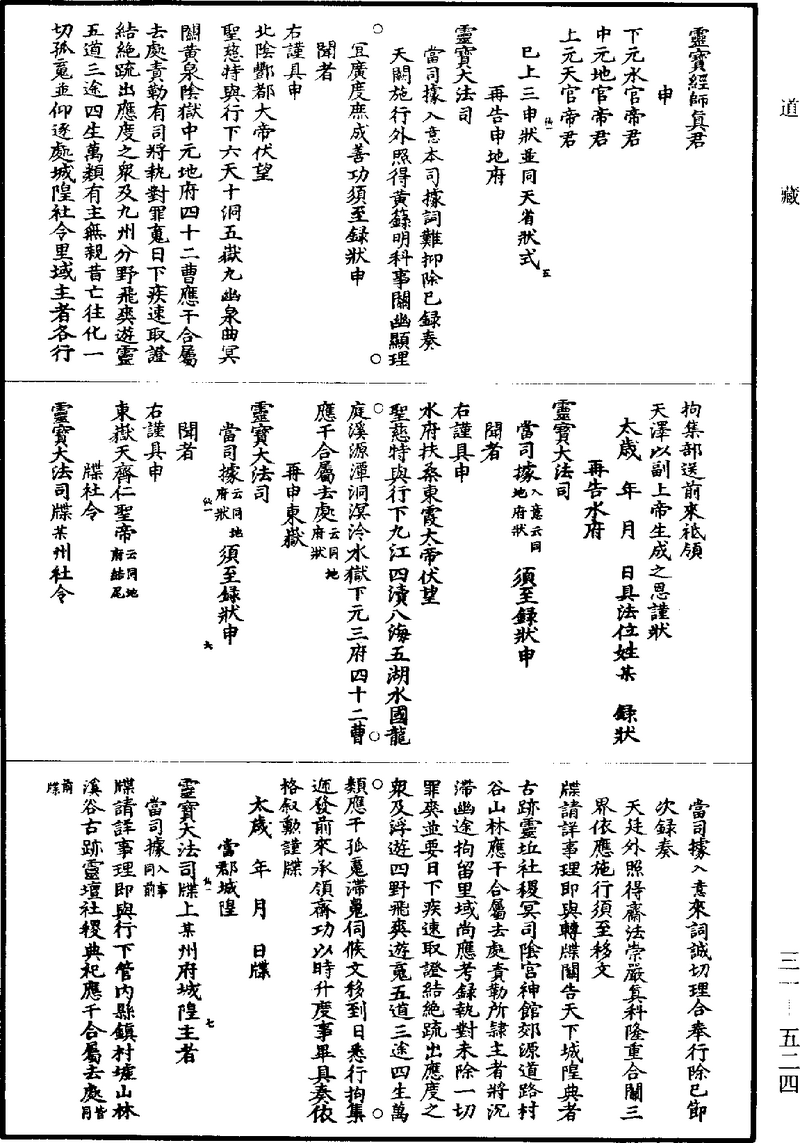 道藏
靈寶經師真君
申
下元水官帝君
中元地官帝君
上元天官帝君
已上三申狀並同天省狀式 五
再告申地府
靈寶大法司
當司據入意本司據詞難抑除已録奏
天闕施行外照得黃籙明科事關幽顯理
宜廣度庶成善功須至録狀申
聞者
右謹具申
北陰酆都大帝伏望
聖慈特與行下六天十洞五嶽九幽泉曲冥
關黃泉陰獄中元地府四十二曹應干合屬
去處責勒有司將執對罪䰟日下疾速取證
結絶䟽出應度之衆及九州分野飛爽遊靈
五道三途四生萬類有主無親昔亡往化一
切孤䰟並仰逐處城隍社令里域主者各行
拘集部送前來祗領
天澤以副上帝生成之恩謹狀
太歲 年 月 日具法位姓某 録狀
再告水府
靈寶大法司
當司據入意云同地府狀 須至録狀申
聞者
右謹具申
水府扶桑東霞大帝伏望
聖慈特與行下九江四瀆八海五湖水國龍
庭溪源潭洞溟泠水獄下元三府四十二曹
應干合屬去處云同地府狀
再申東嶽
靈寶大法司
當司據云同地府狀 須至録狀申 六
聞者
右謹具申
東嶽天齊仁聖帝云同地府結尾
牒社令
靈寶大法司牒某州社令
當司據入意來詞誠切理合奉行除已節
次録奏
天廷外照得齋法崇嚴真科隆重合關三
界依應施行須至移文
牒請詳事理即與轉牒關告天下城隍典者
古跡靈坵社稷冥司陰宮神館郊源道路村
谷山林應干合屬去處責勒所隷主者將沉
滯幽途拘留里域尚應考録執對未除一切
罪爽並要日下疾速取證結絶䟽出應度之
衆及浮遊四野飛爽遊䰟五道三途四生萬
類應干孤䰟滯魄伺候文移到日悉行拘集
迊發前來承領齋功以時升度事畢具奏依
格叙勳謹牒
太歲 年 月 日牒
當郡城隍
靈寶大法司牒上某州府城隍主者 七
當司據入事同前
牒請詳事理即與行下管內縣鎮村墟山林
溪谷古跡靈壇社稷典祀應干合屬去處皆同
前牒
三一—五二四